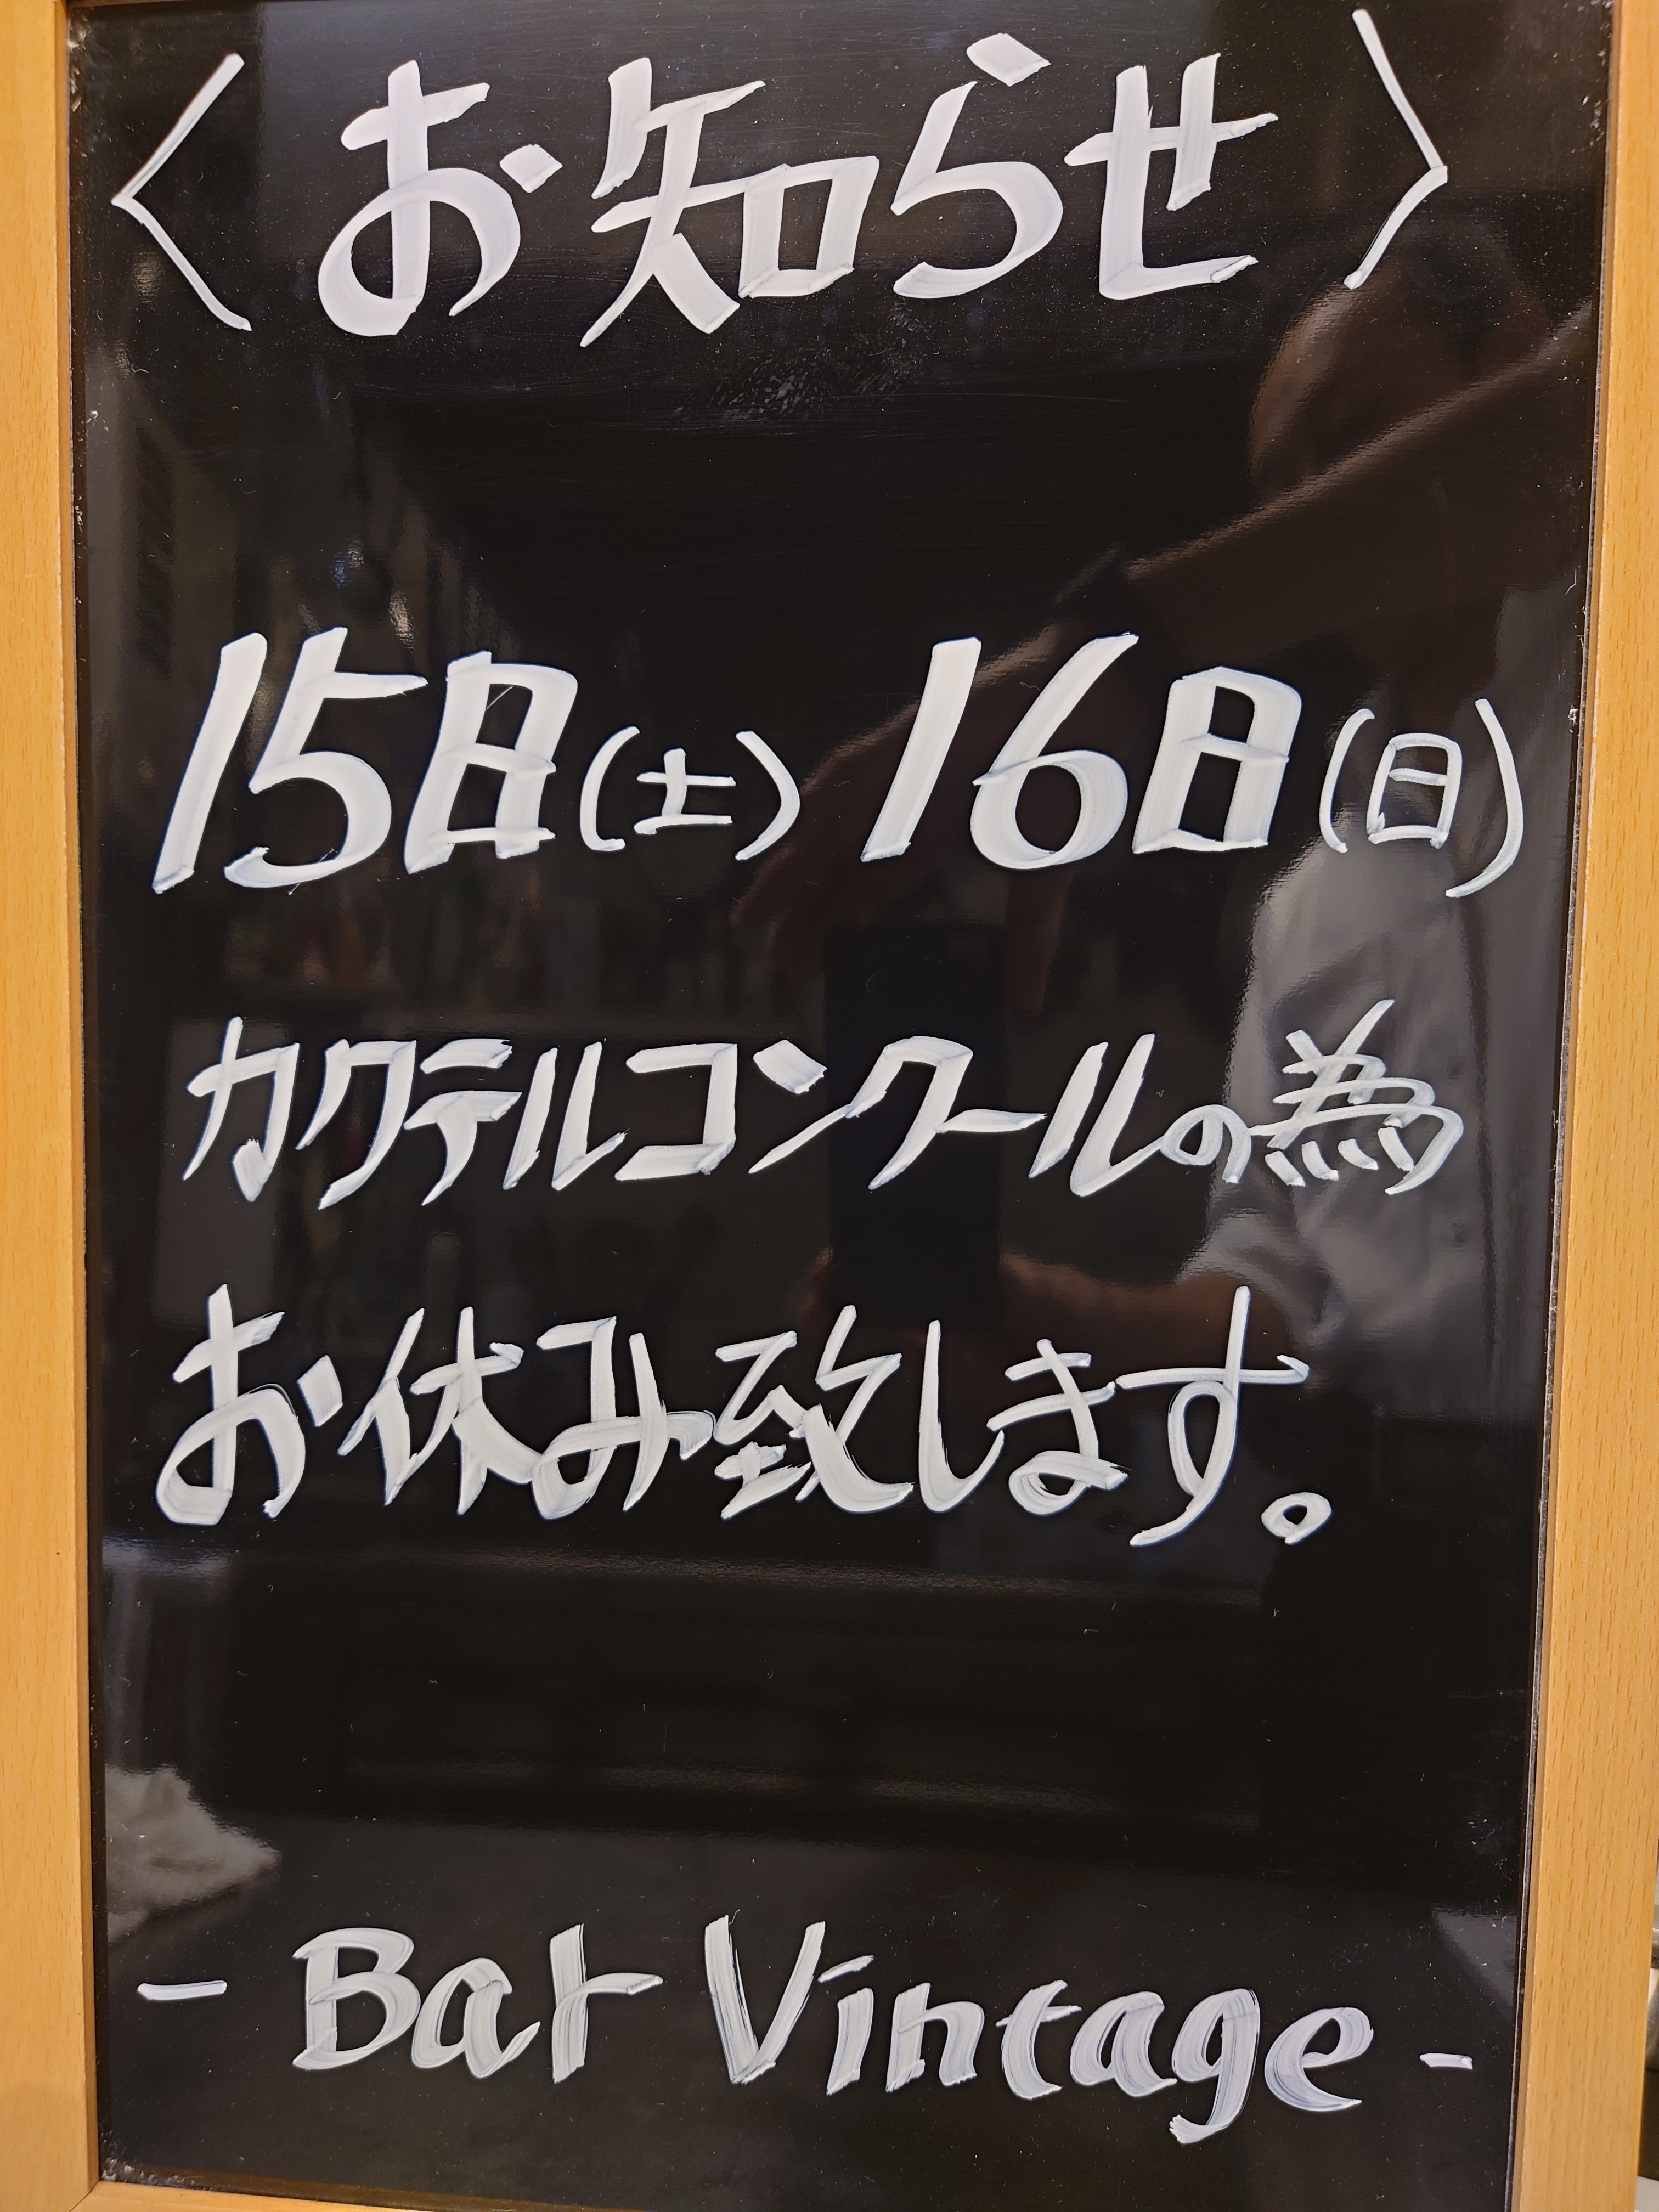 〈お知らせ〉
15日(土) 16日(日)
カクテルコンクールの為
お休み致します。
- Bar Vintage -